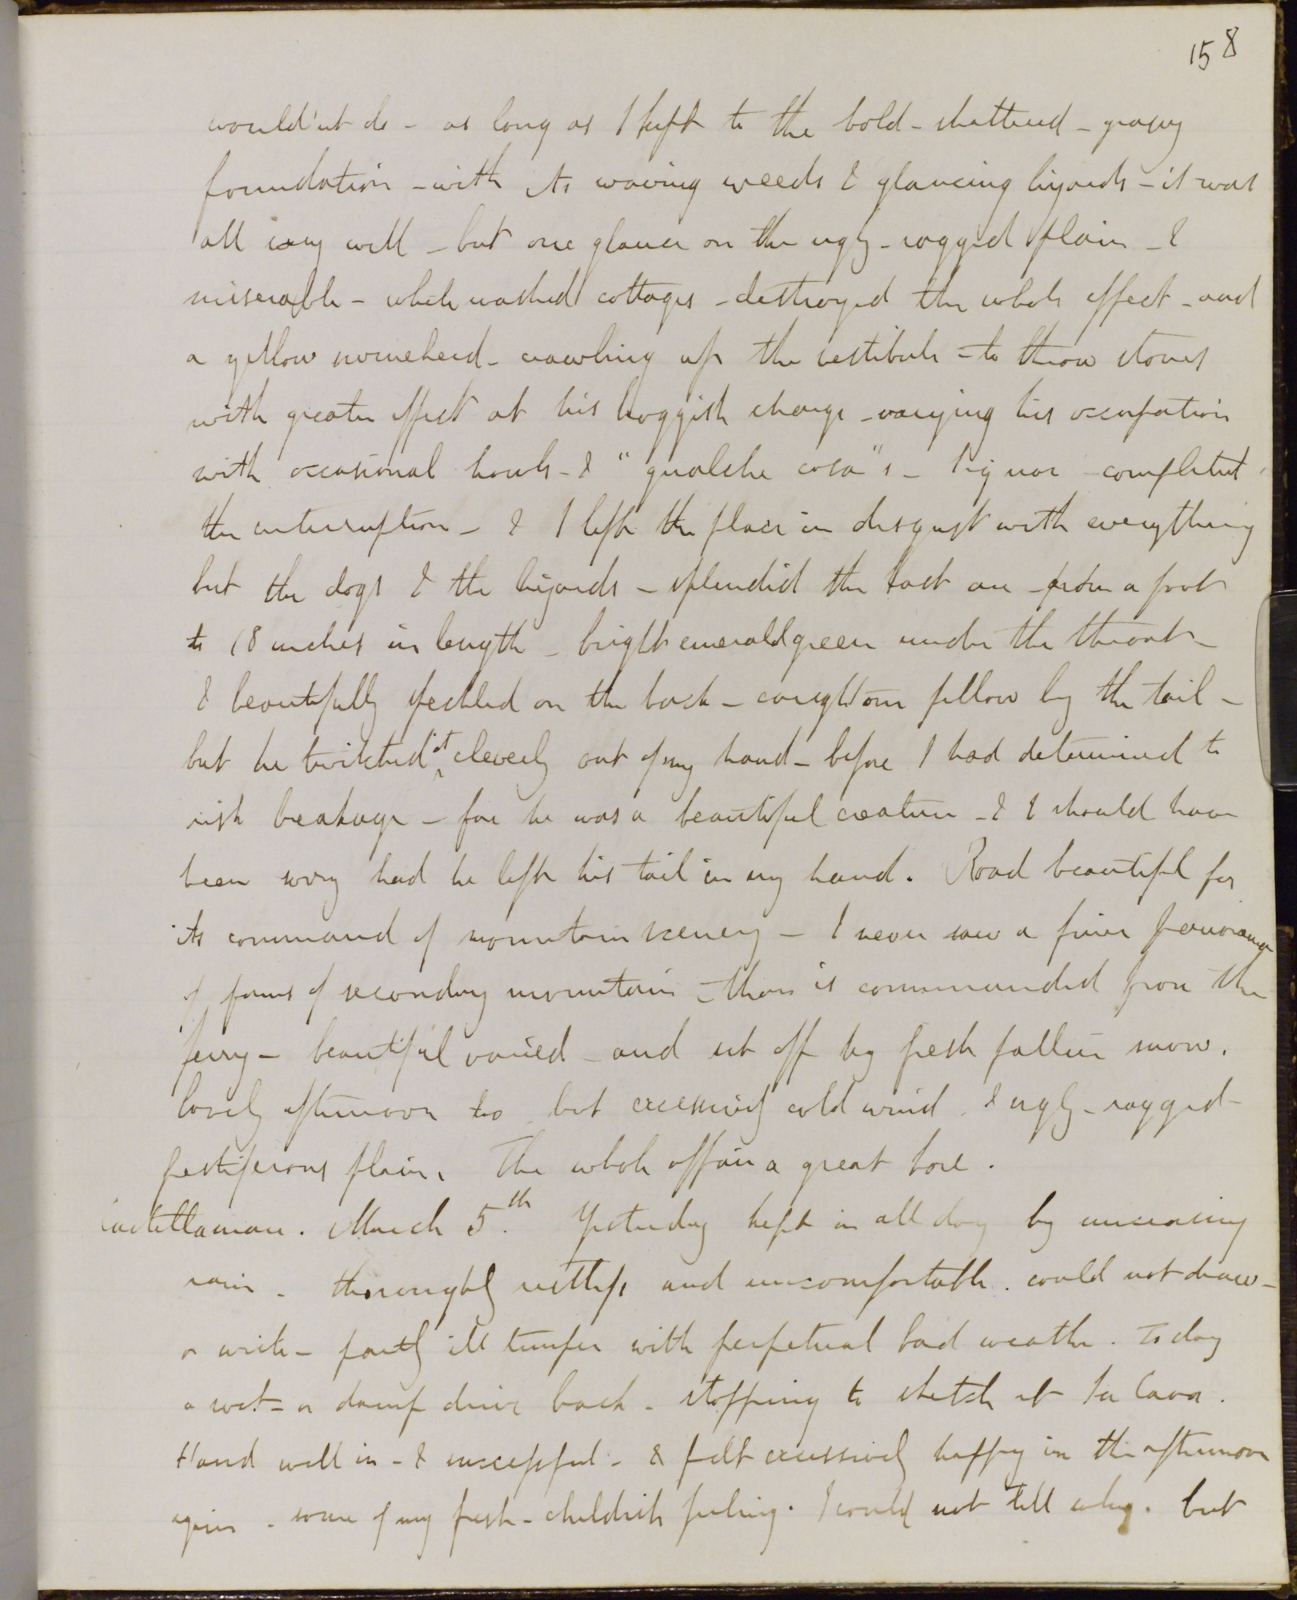 158
would'nt do - as long as I kept to the bold - shattered - grassy
foundation - with its waving weeds & glancing lizards - it was
all very well - but one glance on the ugly - ragged plain - &
miserable - white washed cottages - destroyed the whole effect - and
a yellow swineherd - crawling up the vestibule - to throw stones
with greater effect at his hoggish charge - varying his occupation
with occasional howls - & "qualche cosa"s - Signor - completed
the interruption - & I left the place in disgust with everything
but the dogs & the lizards - splendid the last are - from a foot
to 18 inches in length - bright emerald green under the throat -
& beautifully speckled on the back - caught one fellow by the tail -
but he twitched it cleverly out of my hand - before I had determined to
risk breakage - for he was a beautiful creature - & I should have
been sorry had he left his tail in my hand. Road beautiful for
its command of mountain scenery - I never saw a finer panorama
of forms of secondary mountain - than is commanded from the
ferry - beautiful varied - and set off by fresh fallen snow.
Lovely afternoon too but excessively cold wind & ugly - ragged -
pestiferous plain. The whole affair a great bore.
Castellamare. March 5.th Yesterday kept in all day by unceasing
rain - thoroughly restless and uncomfortable. could not draw -
or write - partly ill temper with perpetual bad weather. Today
a wet - a damp drive back - stopping to sketch at La Cava.
Hand well in - & successful - & felt excessively happy in the afternoon
again - some of my fresh - childish feeling. I could not tell why. but